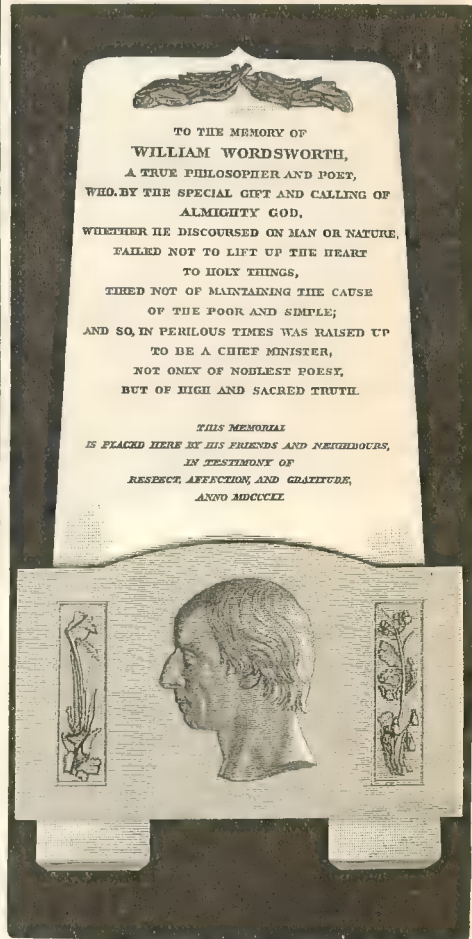 TO THE MEMORY OF
WILLIAM WORDSWORTH,
A TRUE PHILOSOPHER AND POET,
WHO, BY THE SPECIAL GIFT AND CALLING OF
ALMIGHTY GOD,
WHETHER HE DISCOURSED ON MAN OR NATURE,
FAILED NOT TO LIFT UP THE HEART
TO HOLY THINGS,
TIRED NOT OF MAINTAINING THE CAUSE
OF THE POOR AND SIMPLE;
AND SO, IN PERILOUS TIMES WAS RAISED UP
TO BE A CHIEF MINISTER,
NOT ONLY OF NOBLEST POESY,
BUT OF HIGH AND SACRED TRUTH.
THIS MEMORIAL
IS PLACED HERE BY HIS FRIENDS AND NEIGHBOURS,
IN TESTIMONY OF
RESPECT, AFFECTION, AND GRATITUDE,
ANNO MDCCCLI.